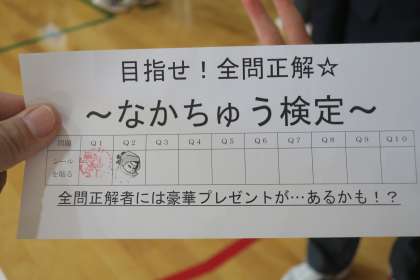 目指せ！全問正解☆
～なかちゅう検定～
問題 Q1 Q2 Q3 Q4 Q5 Q6 Q7 Q8 Q9 Q10
シール
を貼る
全問正解者には豪華プレゼントが…あるかも！？